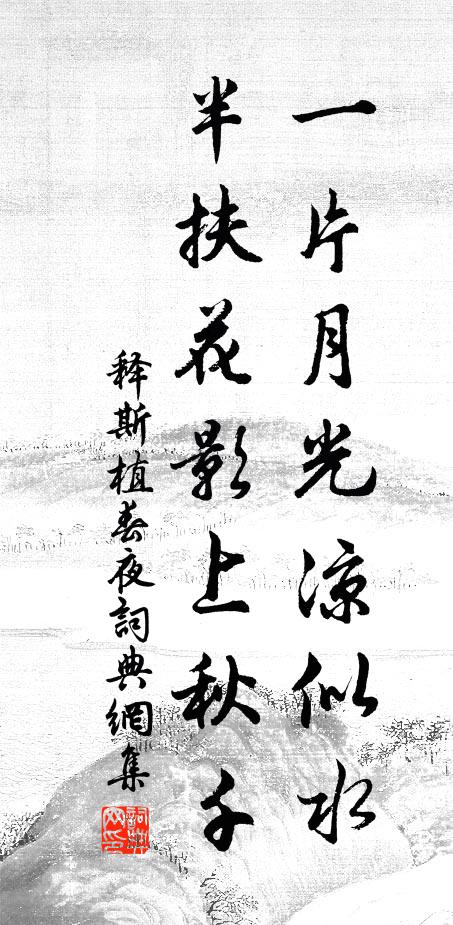 一片月光凉似水
半扶花影上秋千
释斯植春夜詞典網集